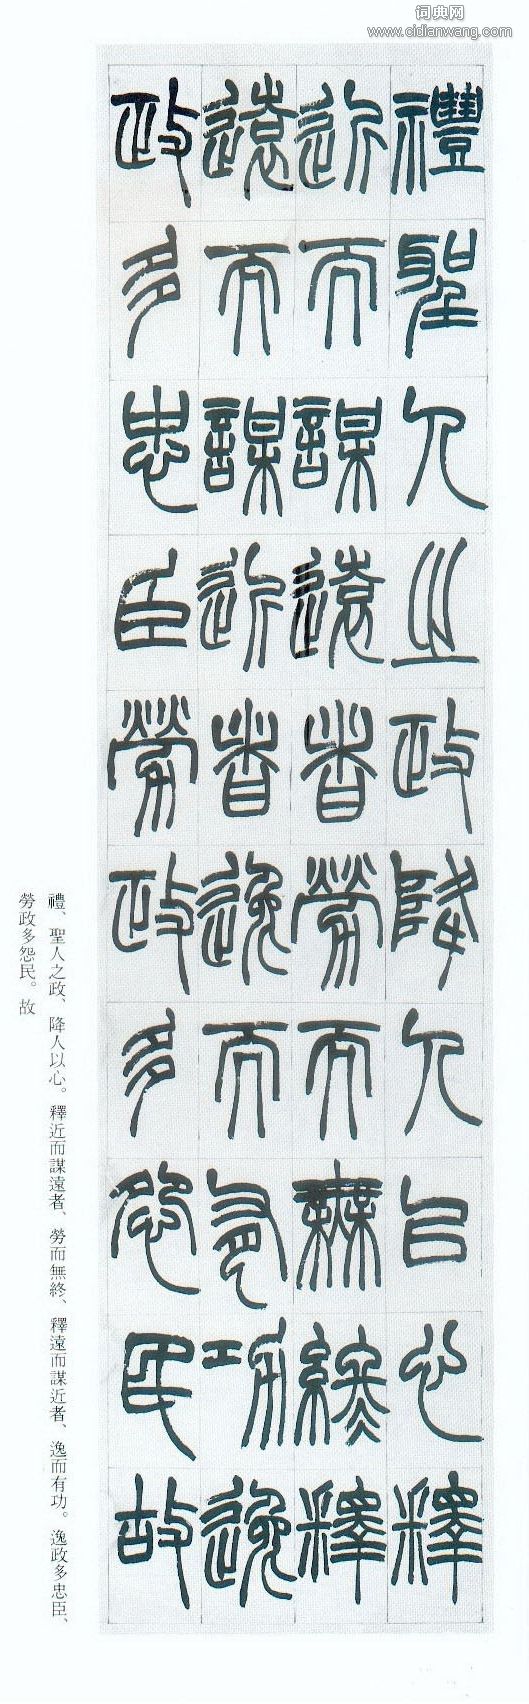 词典网
www.cidianwang.com
禮聖人之政降人以心釋
近而謀遠者勞而無終釋
遠而謀近者逸而有功逸
政多忠臣勞政多怨民故
禮、聖人之政、降人以心。釋近而謀遠者、勞而無終、釋遠而謀近者、逸而有功。逸政多忠臣、
勞政多怨民。故